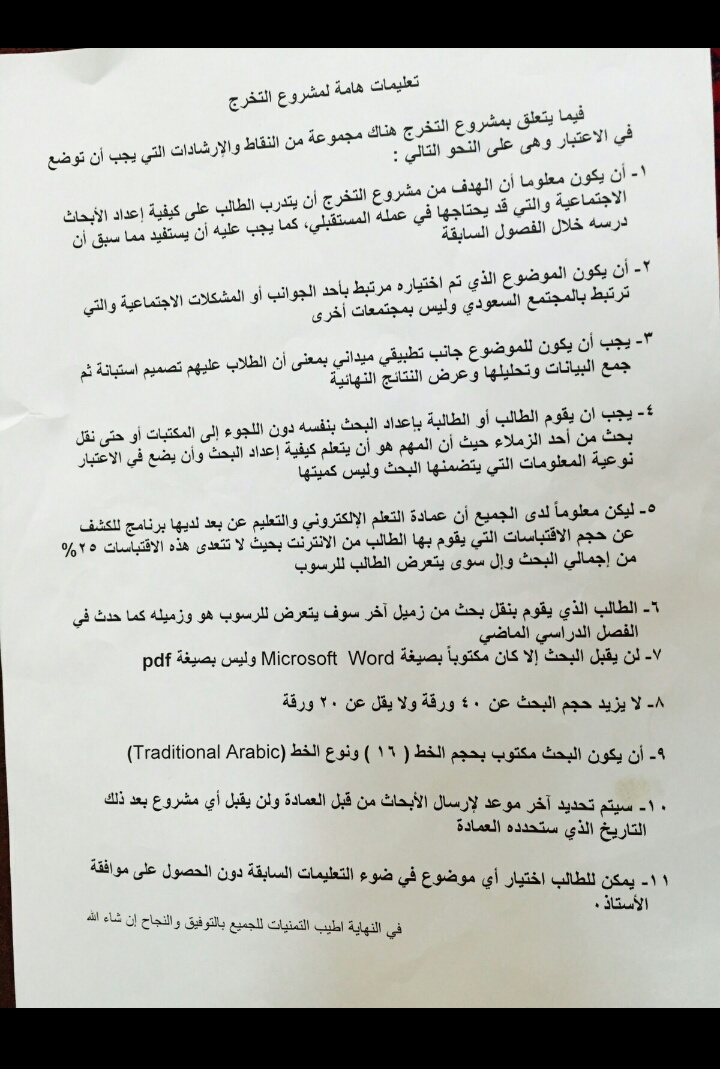 تعليمات هامة لمشروع التخرج
فيما يتعلق بمشروع التخرج هناك مجموعة من النقاط والإرشادات التي يجب أن توضع
في الاعتبار وهى على النحو التالي :
١- أن يكون معلوما أن الهدف من مشروع التخرج أن يتدرب الطالب على كيفية إعداد الأبحاث
الاجتماعية والتي قد يحتاجها في عمله المستقبلي، كما يجب عليه أن يستفيد مما سبق أن
درسه خلال الفصول السابقة
٢- أن يكون الموضوع الذي تم اختياره مرتبط بأحد الجوانب أو المشكلات الاجتماعية والتي
ترتبط بالمجتمع السعودي وليس بمجتمعات أخرى
٣- يجب أن يكون للموضوع جانب تطبيقي ميداني بمعنى أن الطلاب عليهم تصميم استبانة ثم
جمع البيانات وتحليلها وعرض النتائج النهائية
٤- يجب ان يقوم الطالب أو الطالبة بإعداد البحث بنفسه دون اللجوء إلى المكتبات أو حتى نقل
بحث من أحد الزملاء حيث أن المهم هو أن يتعلم كيفية إعداد البحث وأن يضع في الاعتبار
نوعية المعلومات التي يتضمنها البحث وليس كميتها
٥- ليكن معلوماً لدى الجميع أن عمادة التعلم الإلكتروني والتعليم عن بعد لديها برنامج للكشف
عن حجم الاقتباسات التي يقوم بها الطالب من الانترنت بحيث لا تتعدى هذه الاقتباسات ٢٥%
من إجمالي البحث وإل سوى يتعرض الطالب للرسوب
٦- الطالب الذي يقوم بنقل بحث من زميل آخر سوف يتعرض للرسوب هو وزميله كما حدث في
الفصل الدراسي الماضي
٧- لن يقبل البحث إلا كان مكتوباً بصيغة Microsoft Word وليس بصيغة pdf
٨- لا يزيد حجم البحث عن ٤٠ ورقة ولا يقل عن ٢٠ ورقة
٩- أن يكون البحث مكتوب بحجم الخط ( ١٦ ) ونوع الخط (Traditional Arabic)
١٠- سيتم تحديد آخر موعد لإرسال الأبحاث من قبل العمادة ولن يقبل أي مشروع بعد ذلك
التاريخ الذي ستحدده العمادة
١١- يمكن للطالب اختيار أي موضوع في ضوء التعليمات السابقة دون الحصول على موافقة
الأستاذ .
في النهاية اطيب التمنيات للجميع بالتوفيق والنجاح إن شاء الله